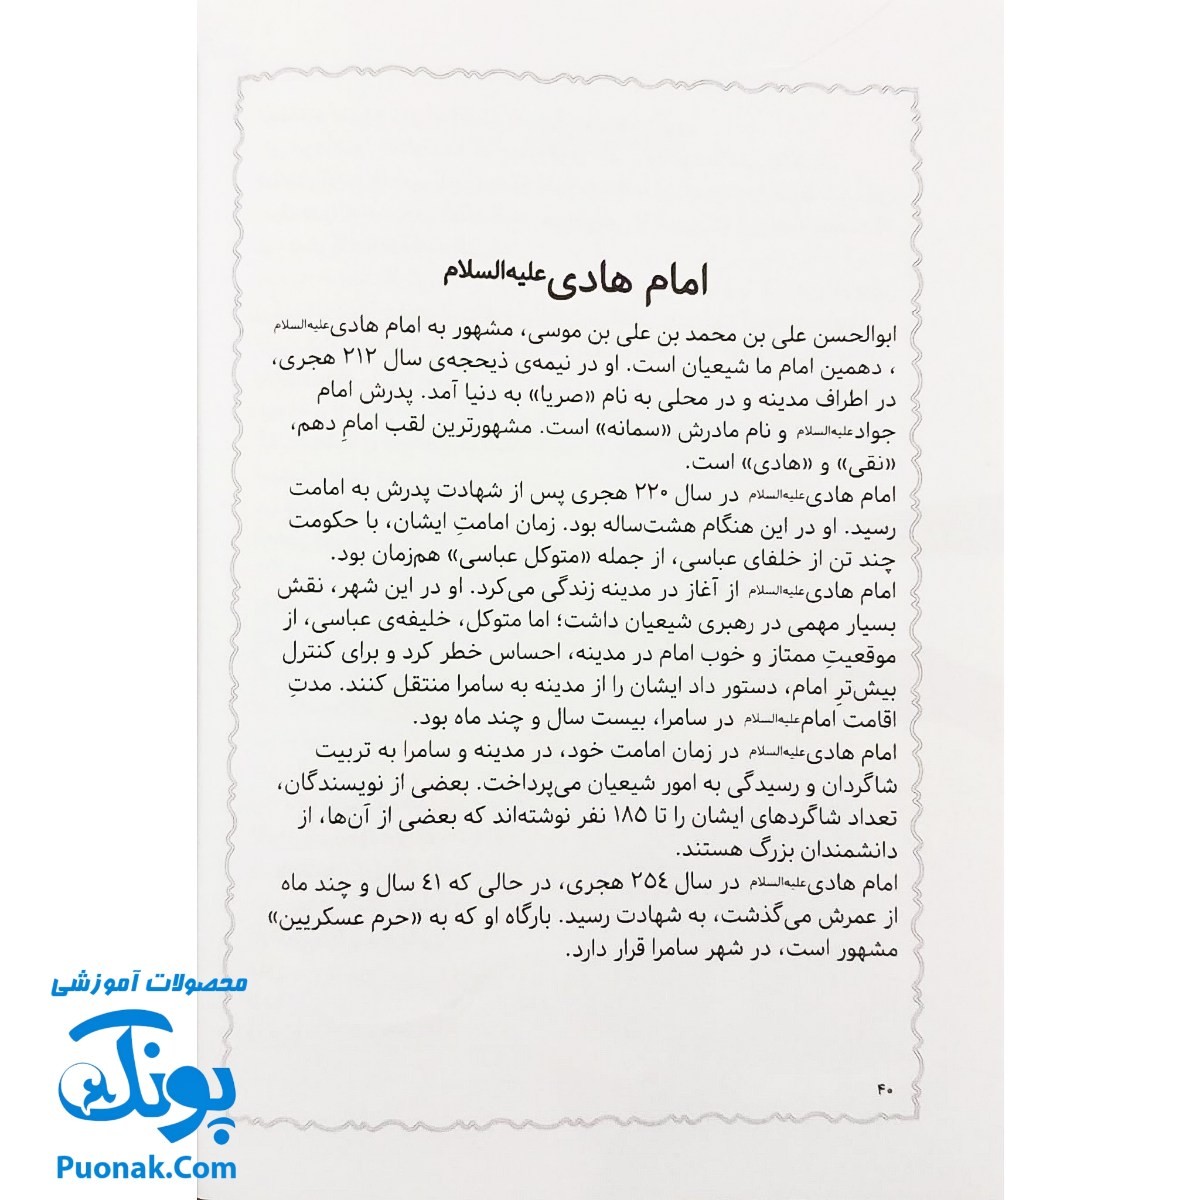 امام هادی علیه‌السلام
ابوالحسن علی بن محمد بن علی بن موسی، مشهور به امام هادی علیه‌السلام
، دهمین امام ما شیعیان است. او در نیمه‌ی ذیحجه‌ی سال ۲۱۲ هجری،
در اطراف مدینه و در محلی به نام «صریا» به دنیا آمد. پدرش امام
جواد علیه‌السلام و نام مادرش «سمانه» است. مشهورترین لقب امامِ دهم،
«نقی» و «هادی» است.
امام هادی علیه‌السلام در سال ۲۲۰ هجری پس از شهادت پدرش به امامت
رسید. او در این هنگام هشت‌ساله بود. زمان امامتِ ایشان، با حکومت
چند تن از خلفای عباسی، از جمله «متوکل عباسی» هم‌زمان بود.
امام هادی علیه‌السلام از آغاز در مدینه زندگی می‌کرد. او در این شهر، نقش
بسیار مهمی در رهبری شیعیان داشت؛ اما متوکل، خلیفه‌ی عباسی، از
موقعیتِ ممتاز و خوب امام در مدینه، احساس خطر کرد و برای کنترل
بیش‌ترِ امام، دستور داد ایشان را از مدینه به سامرا منتقل کنند. مدتِ
اقامت امام علیه‌السلام در سامرا، بیست سال و چند ماه بود.
امام هادی علیه‌السلام در زمان امامت خود، در مدینه و سامرا به تربیت
شاگردان و رسیدگی به امور شیعیان می‌پرداخت. بعضی از نویسندگان،
تعداد شاگردهای ایشان را تا ۱۸۵ نفر نوشته‌اند که بعضی از آن‌ها، از
دانشمندان بزرگ هستند.
امام هادی علیه‌السلام در سال ۲۵٤ هجری، در حالی که ٤۱ سال و چند ماه
از عمرش می‌گذشت، به شهادت رسید. بارگاه او که به «حرم عسکریین»
مشهور است، در شهر سامرا قرار دارد.
۴۰
محصولات آموزشی
پونک
Puonak.Com